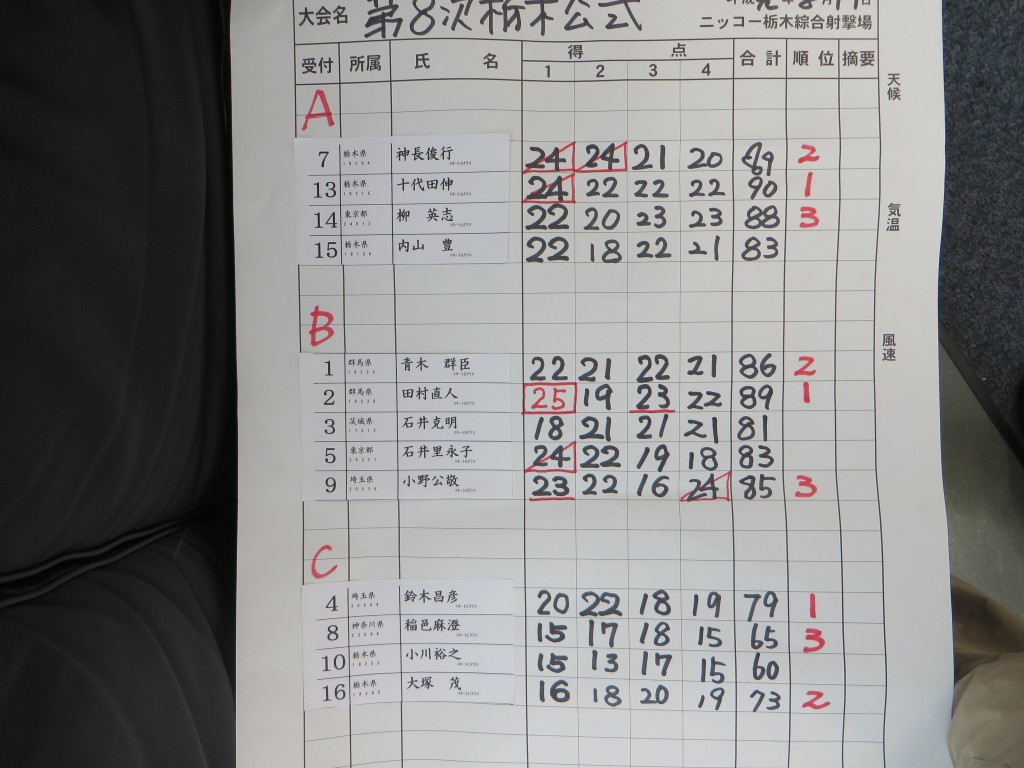 大会名 第8次栃木公式
ニッコー栃木綜合射撃場
受付 所属 氏名 得点 合計 順位 摘要
1 2 3 4
天候
A
7 栃木県 神長俊行 24 24 21 20 89 2
13 栃木県 十代田伸 24 22 22 22 90 1
14 東京都 柳 英志 22 20 23 23 88 3
気温
15 栃木県 内山 豊 22 18 22 21 83
B
風速
1 群馬県 青木 群臣 22 21 22 21 86 2
2 群馬県 田村直人 25 19 23 22 89 1
3 茨城県 石井克明 18 21 21 21 81
5 東京都 石井里永子 24 22 19 18 83
9 埼玉県 小野公敬 23 22 16 24 85 3
C
4 埼玉県 鈴木昌彦 20 22 18 19 79 1
8 神奈川県 稲邑麻澄 15 17 18 15 65 3
10 栃木県 小川裕之 15 13 17 15 60
16 栃木県 大塚 茂 16 18 20 19 73 2